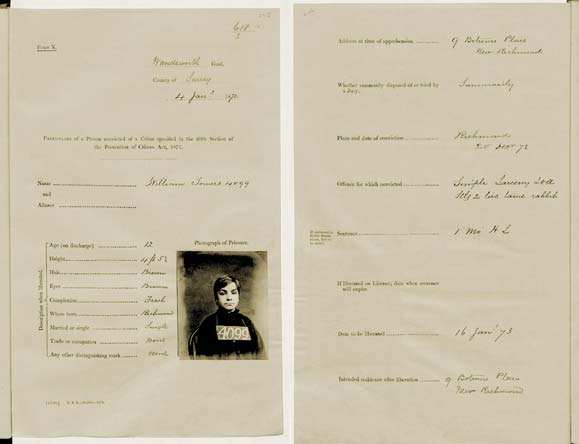 618
3
FORM X.
Wandsworth Gaol.
County of Surrey
4 Jany 1873
PARTICULARS of a Person convicted of a Crime specified in the 20th Section of
the Prevention of Crimes Act, 1871.
Name William Towers 4099
and
Aliases
Description when liberated.
Age (on discharge) 12
Height 4 ft 5½
Hair Brown
Eyes Brown
Complexion Fresh
Where born Richmond
Married or single Single
Trade or occupation None
Any other distinguishing mark None
Photograph of Prisoner.
4099
Address at time of apprehension 9 Place
New Richmond
Whether summarily disposed of or tried by Summarily
a Jury.
Place and date of conviction Richmond
Decr 72
Offence for which convicted Simple Larceny
Stlg 2 live tame rabbits
Sentence 1 Mo H L
If liberated on License, date when sentence
will expire.
Date to be liberated 16 Jany 73
Intended residence after liberation 9 Place
New Richmond